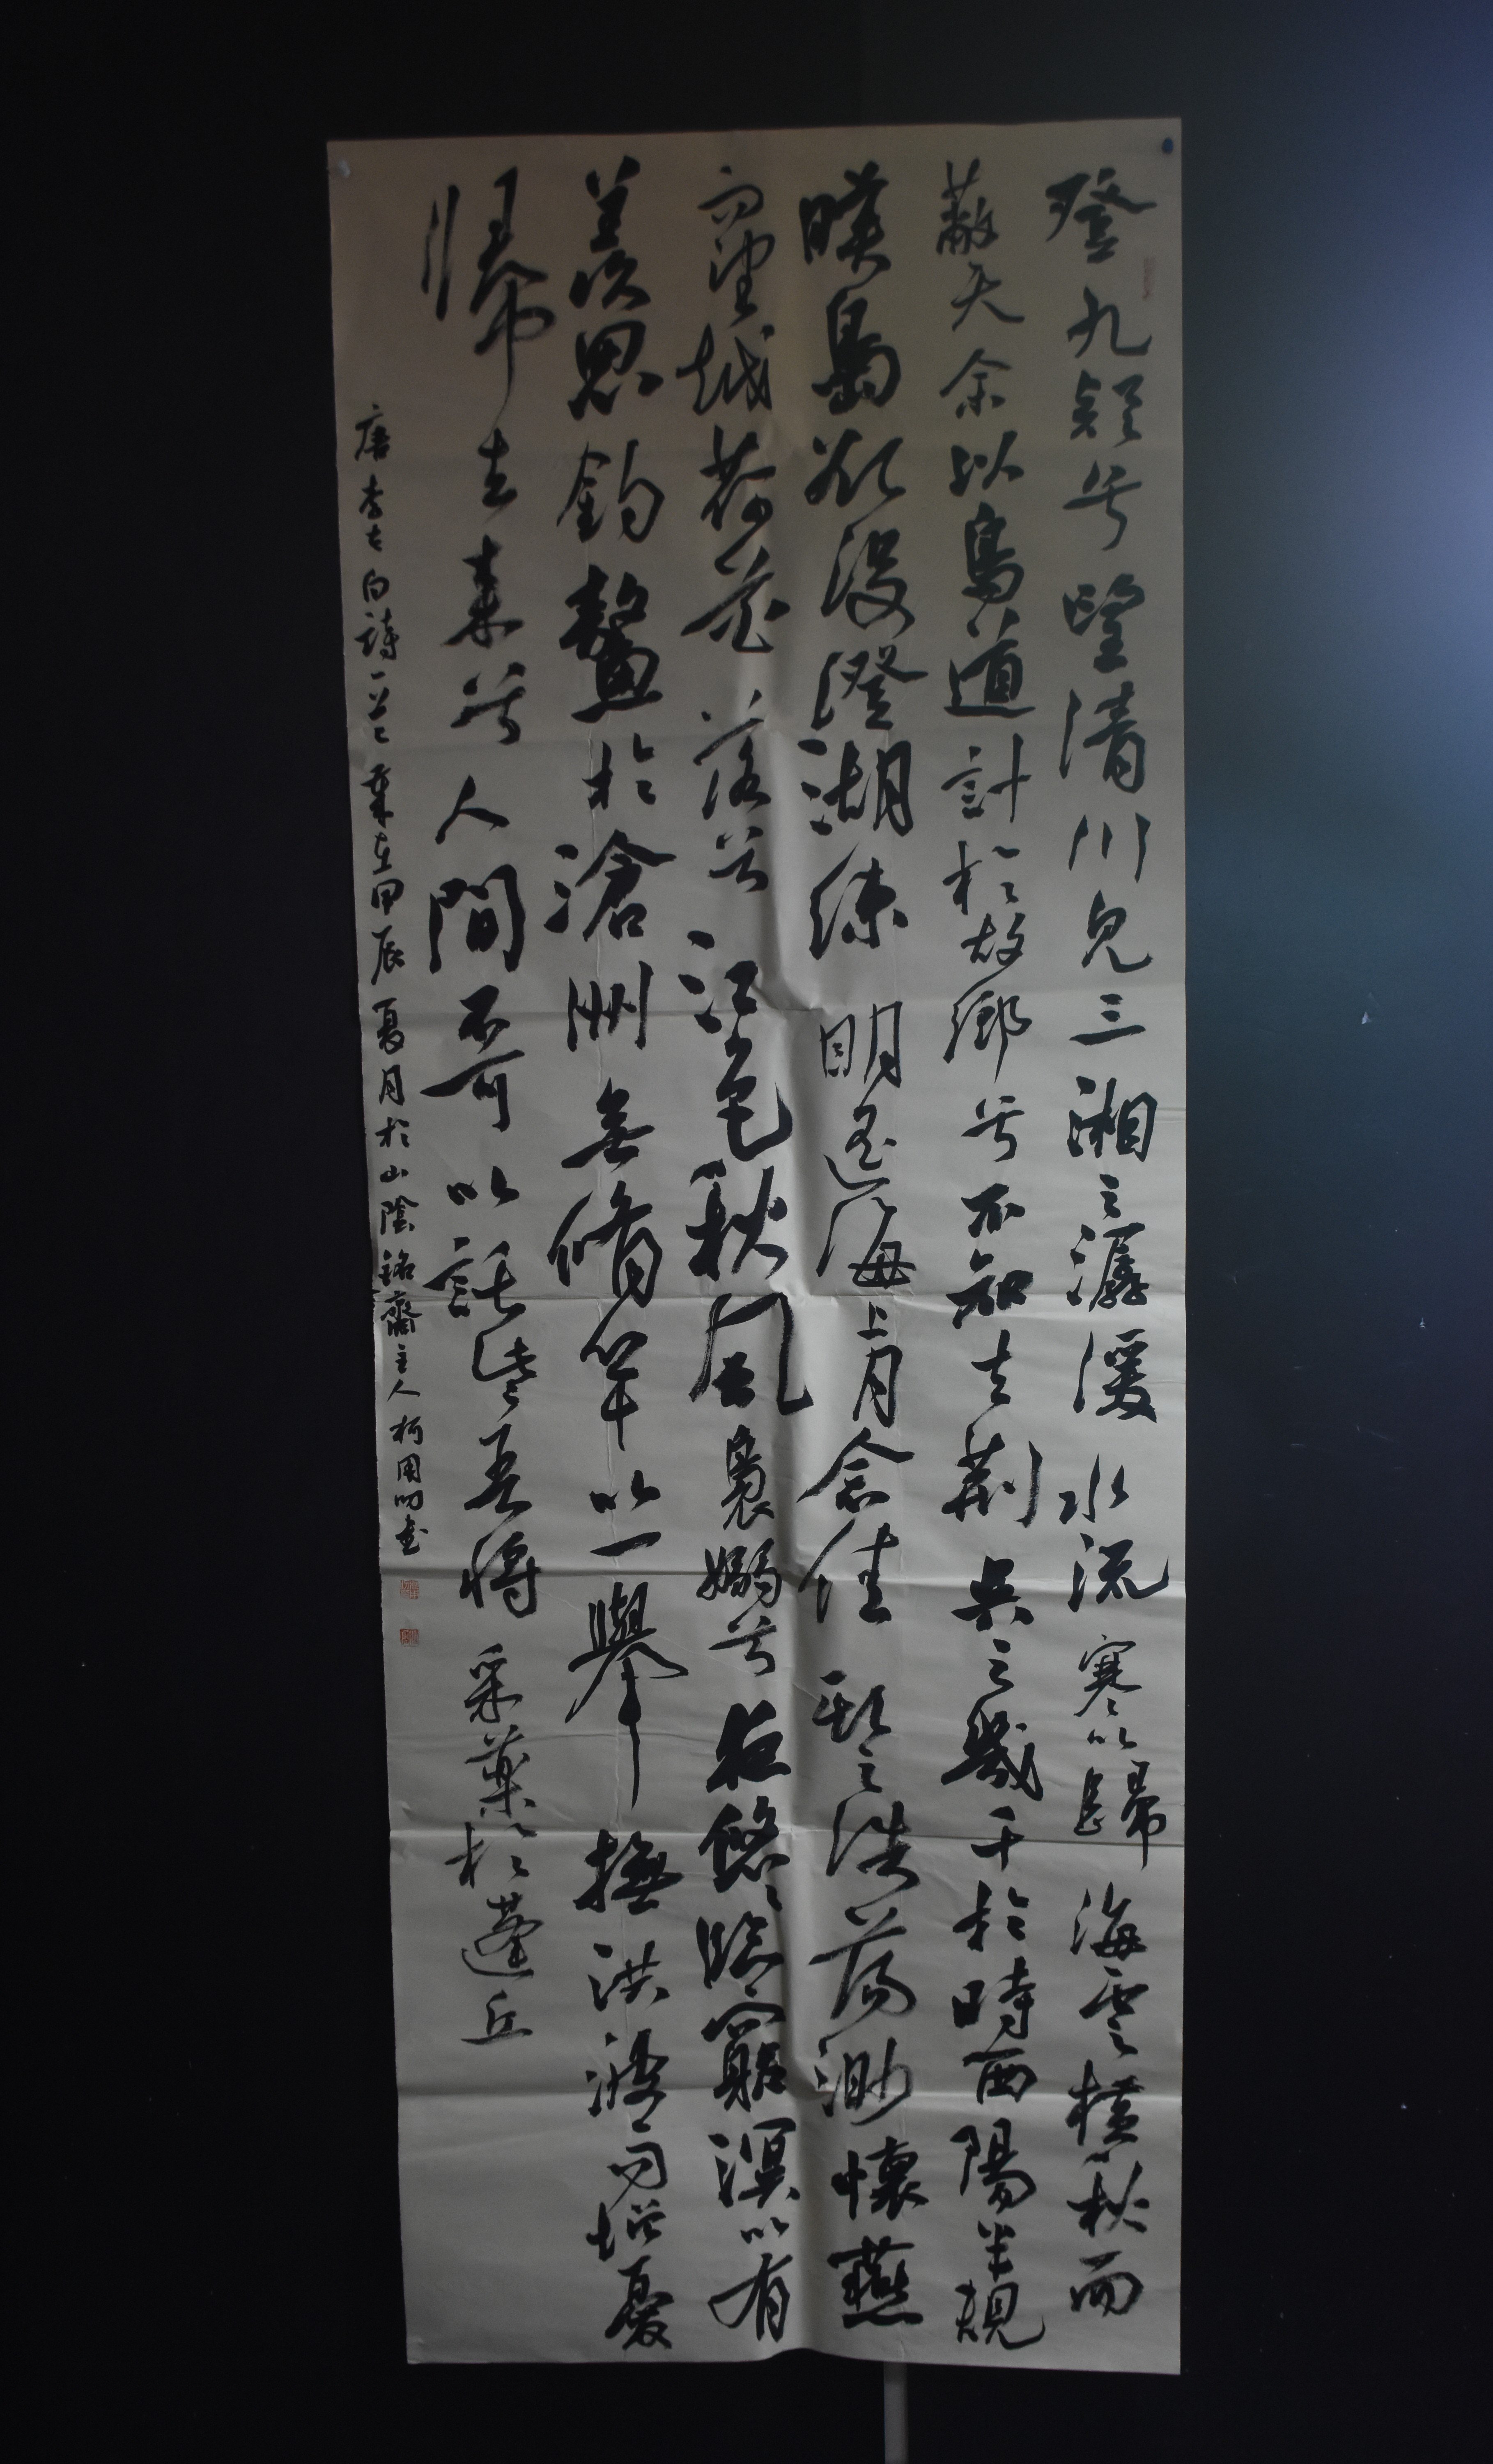 登九疑兮望清川見三湘之潺湲水流寒以歸海雲橫秋而
蔽天余以鳥道計於故鄉兮不知去荊吳之幾千於時西陽半規
暎島欲沒澄湖練明遙海上月念佳期之浩蕩渺懷燕
而望越荷花落兮江色秋風裊嫋兮夜悠悠臨窮溟以有
羨思釣鰲於滄洲無脩竿以一舉撫洪波而增憂
歸去來兮人間不可以託些吾將采藥於蓬丘
唐李太白詩一首歲在甲辰夏月於山陰銘齋主人柯明書